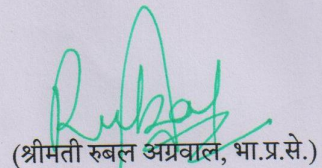 Rubal
(श्रीमती रुबल अग्रवाल, भा.प्र.से.)